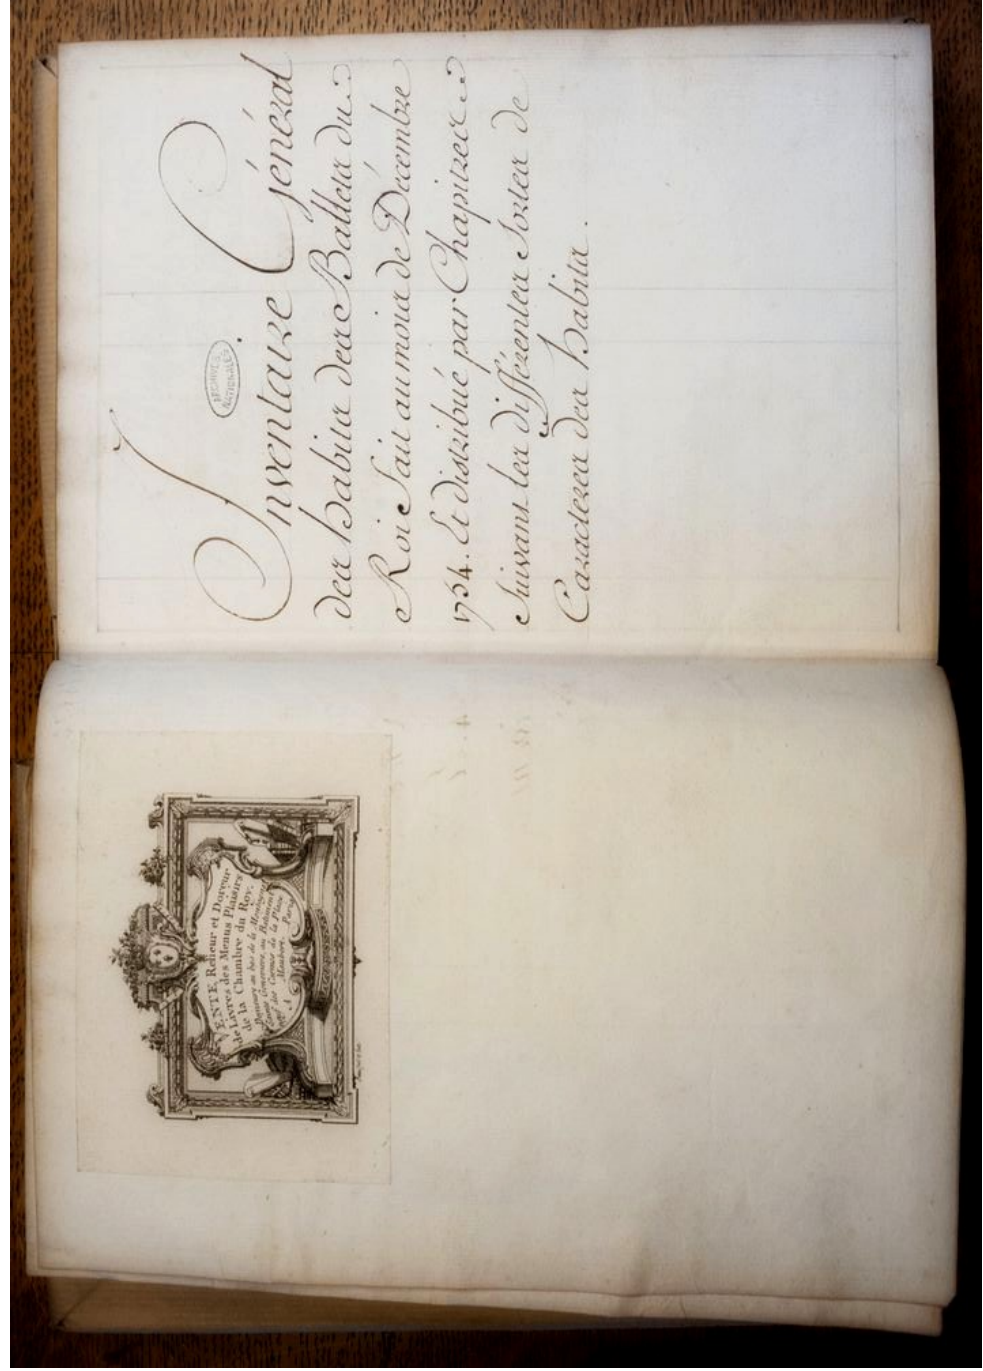 VENTE Relieur et Doreur
de Livres des Menus Plaisirs
de la Chambre du Roy.
au bas de la Montagne
Sainte Genevieve, au Batiment
neuf des Carmes de la Place
A Maubert. Paris
Inventaire Général
ARCHIVES NATIONALES
des habits des Ballets du
Roi Fait au mois de Décembre
1754. Et distribué par Chapitres
Suivant les différentes Sortes de
Caracteres des habits.